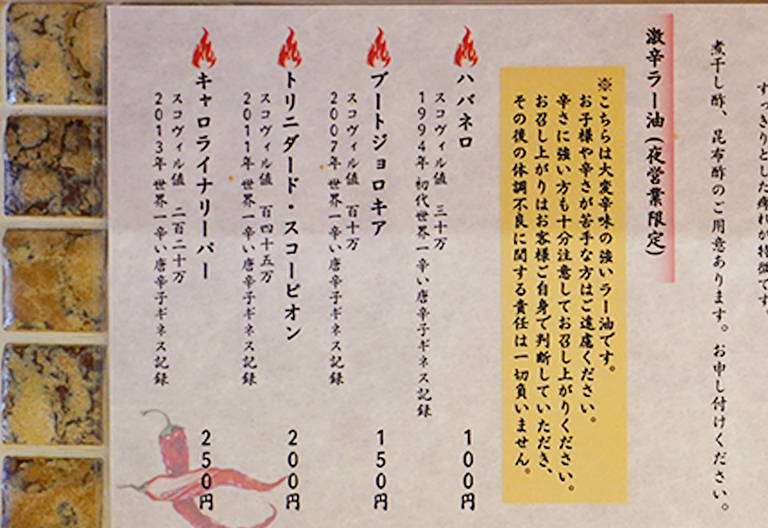 すっきりとした痺れが特徴です。
煮干し酢、昆布酢のご用意あります。お申し付けください。
激辛ラー油(夜営業限定)
※こちらは大変辛味の強いラー油です。
お子様や辛さが苦手な方はご遠慮ください。
辛さに強い方も十分注意してお召し上がりください。
お召し上がりはお客様ご自身で判断していただき、
その後の体調不良に関する責任は一切負いません。
ハバネロ 100円
スコヴィル値 三十万
1994年 初代世界一辛い唐辛子ギネス記録
ブートジョロキア 150円
スコヴィル値 百十万
2007年 世界一辛い唐辛子ギネス記録
トリニダード・スコーピオン 200円
スコヴィル値 百四十五万
2011年 世界一辛い唐辛子ギネス記録
キャロライナリーパー 250円
スコヴィル値 二百二十万
2013年 世界一辛い唐辛子ギネス記録